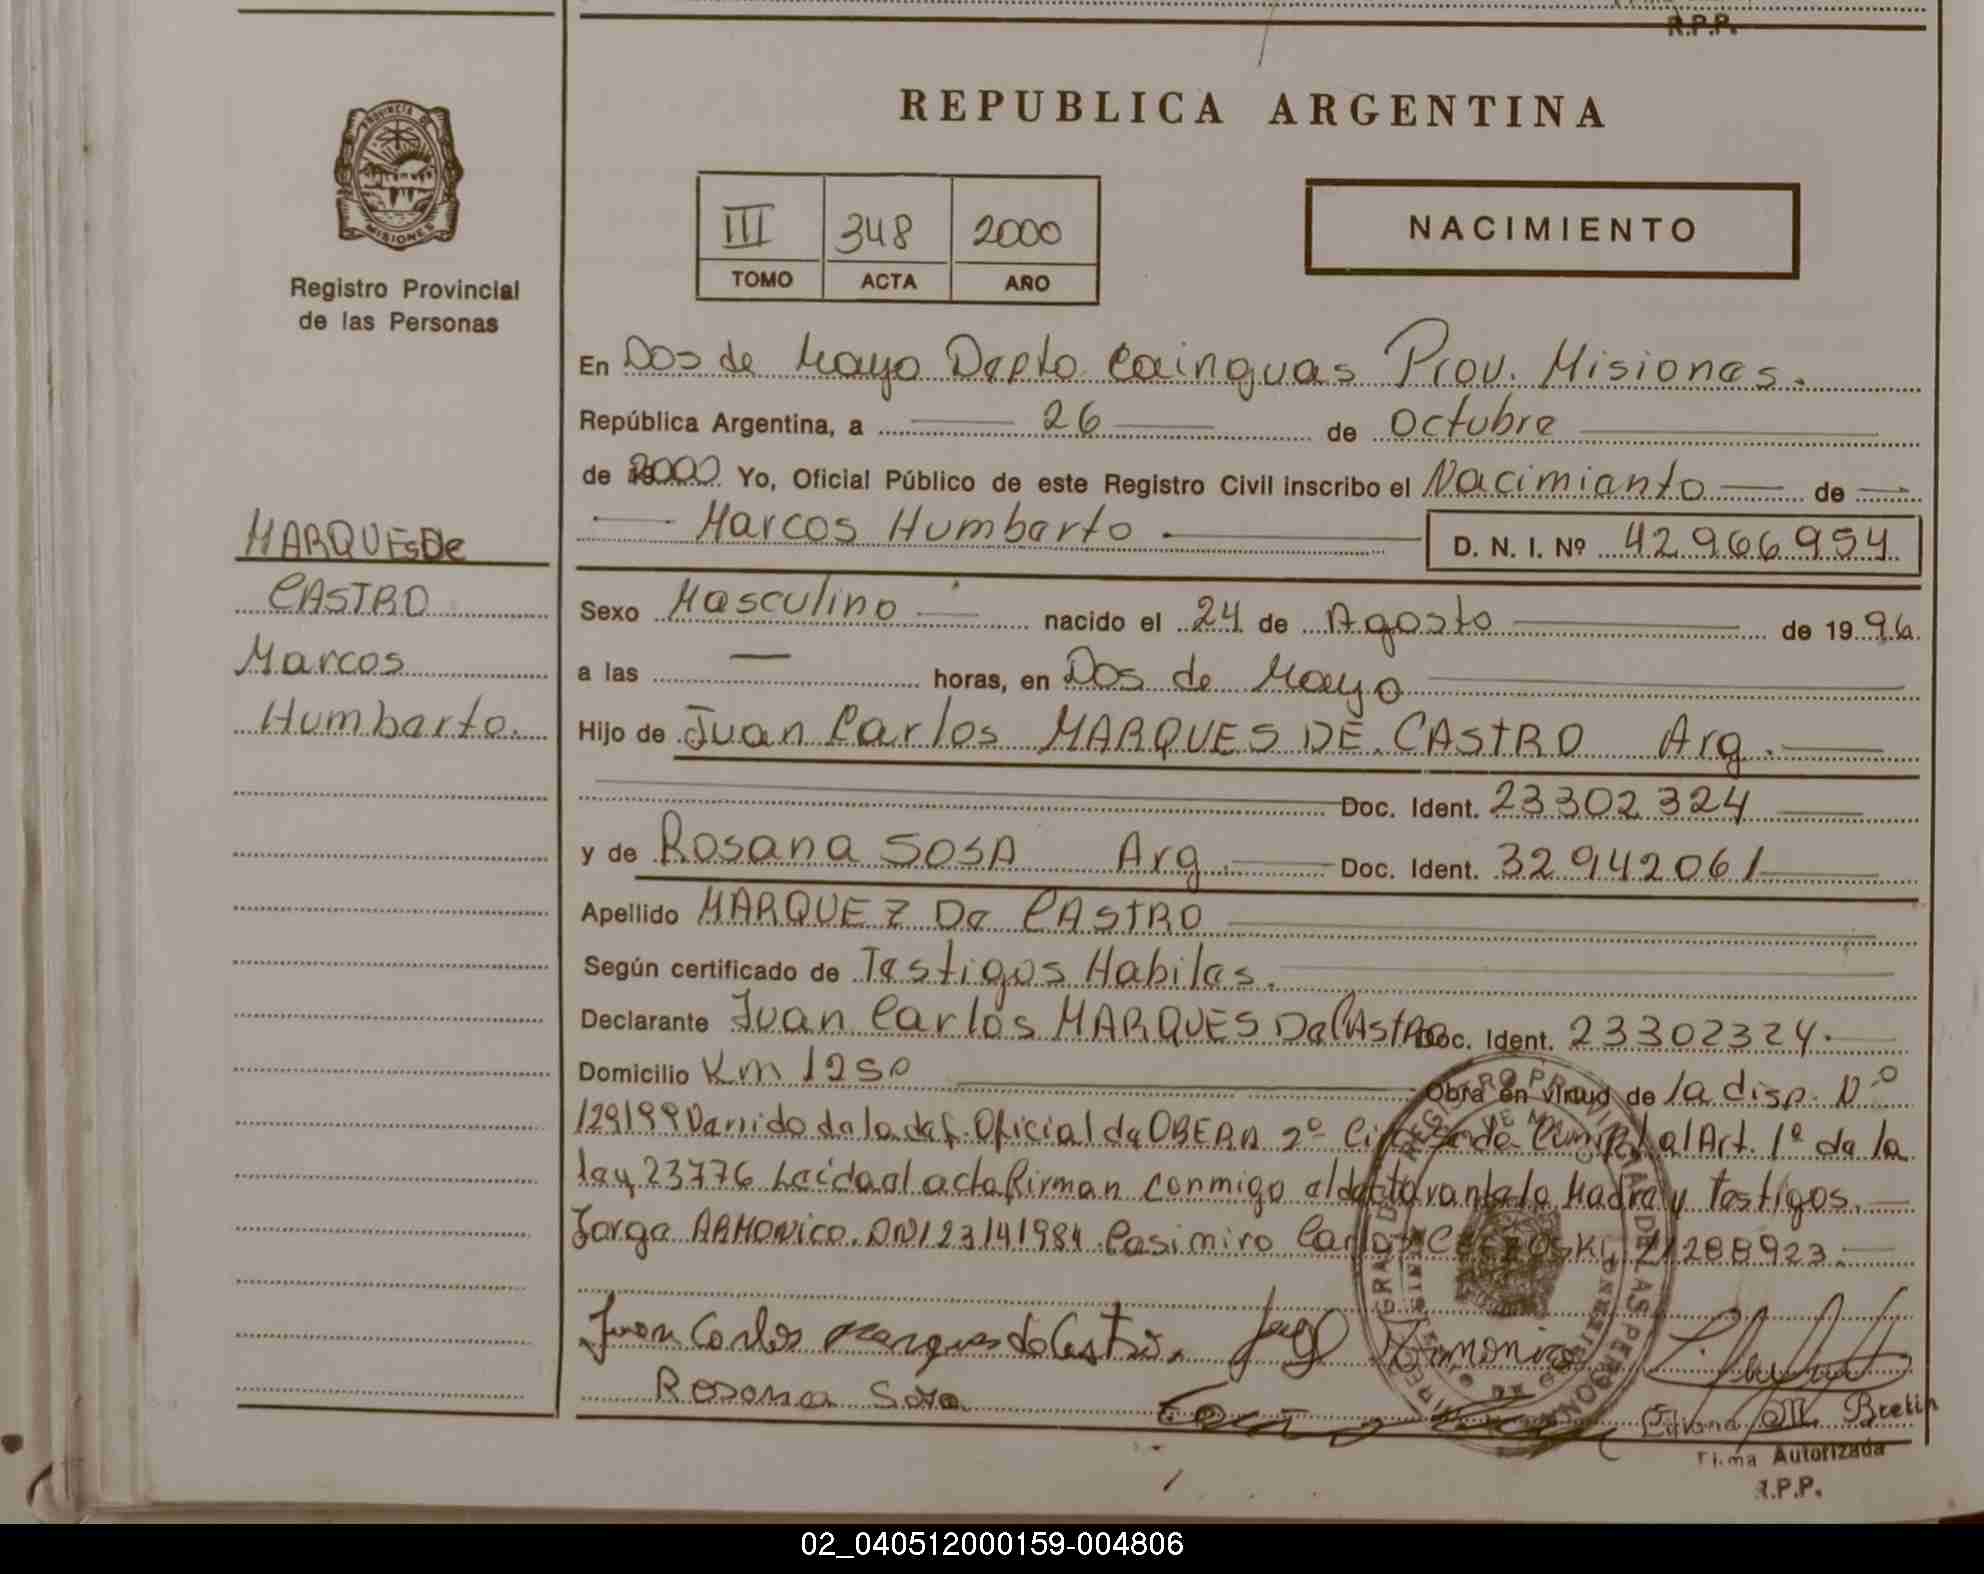 R.P.P.
PROVINCIA DE
MISIONES
Registro Provincial
de las Personas
REPUBLICA ARGENTINA
III 348 2000
TOMO ACTA AÑO
NACIMIENTO
En Dos de Mayo Depto Cainguas Prov. Misiones.
República Argentina, a 26 de Octubre
de 2000 Yo, Oficial Público de este Registro Civil inscribo el Nacimiento de
Marcos Humberto D. N. I. Nº 42966954
MARQUES De
CASTRO
Marcos
Humberto.
Sexo Masculino nacido el 24 de Agosto de 1996
a las — horas, en Dos de Mayo
Hijo de Juan Carlos MARQUES DE CASTRO Arg.
Doc. Ident. 23302324
y de Rosana SOSA Arg. Doc. Ident. 32942061
Apellido MARQUEZ De CASTRO
Según certificado de Testigos Habiles.
Declarante Juan Carlos MARQUES De CASTRO Doc. Ident. 23302324.
Domicilio Km 1250 Obra en virtud de la disp. Nº
129/99 Venido de la def. Oficial de OBERA 2º al Art. 1º de la
ley 23776 Leida el acta firman conmigo el la Madre y Testigos.
Jorge ARMONICO. DNI 23141984. Casimiro Carlos 21288923.
Juan Carlos Marques de Castro. Jorge Armonico
Rosana Sosa
Liliana M. Bretin
Firma Autorizada
R.P.P.
02_040512000159-004806